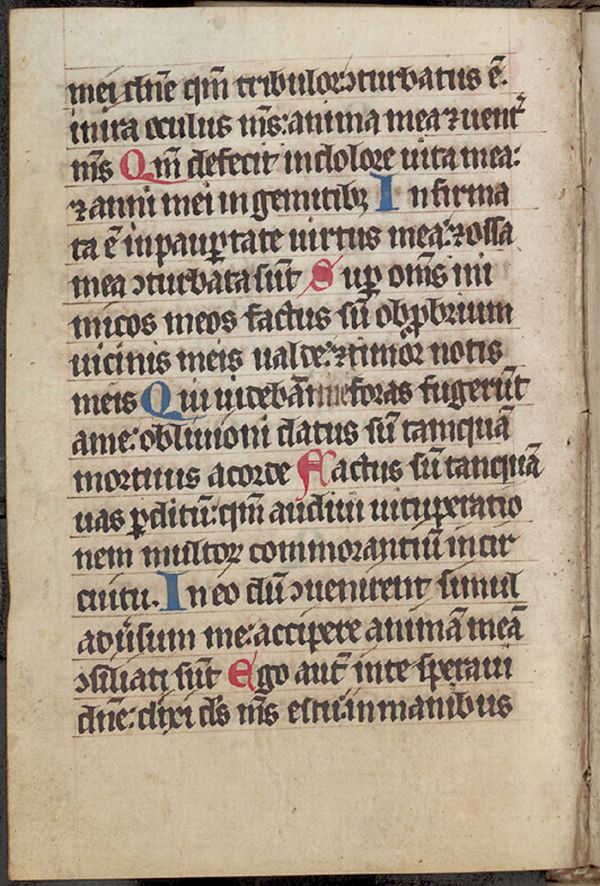 mei dn̄e qm̄ tribulor ↄturbatus ē.
in ira oculus m̄s: anima mea ⁊ uent̄
m̄s Qm̄ defecit in dolore uita mea:
⁊ anni mei in gemitibꝫ Infirma
ta ē in paup̄tate uirtus mea: ⁊ ossa
mea ↄturbata sūt Sup̄ om̄s ini
micos meos factus sū obp̄brium
uicinis meis ualde: ⁊ timor notis
meis Qui uidebāt me foras fugerūt
a me: obliuioni datus sū tamquā
mortuus a corde Factus sū tanquā
uas p̄ditū: qm̄ audiui uituperatio
nem multoꝝ commorantiū in cir
cuitu. In eo dū ↄuenirent simul
adūsum me: accipere animā meā
ↄsiliati sūt Ego aut̄ in te speraui
dn̄e: dixi ds̄ m̄s es tu: in manibus